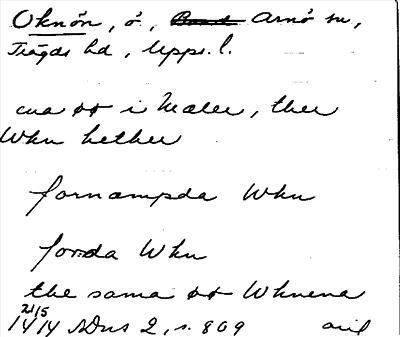 Oknön, ö, Arnö sn,
Trögds hd, Upps. l.
ena öö i Mäler, ther
Wkn hether
fornempda Wkn
forda Wkn
the sama öö Wknena
21/5
1414 SDns 2, s. 809